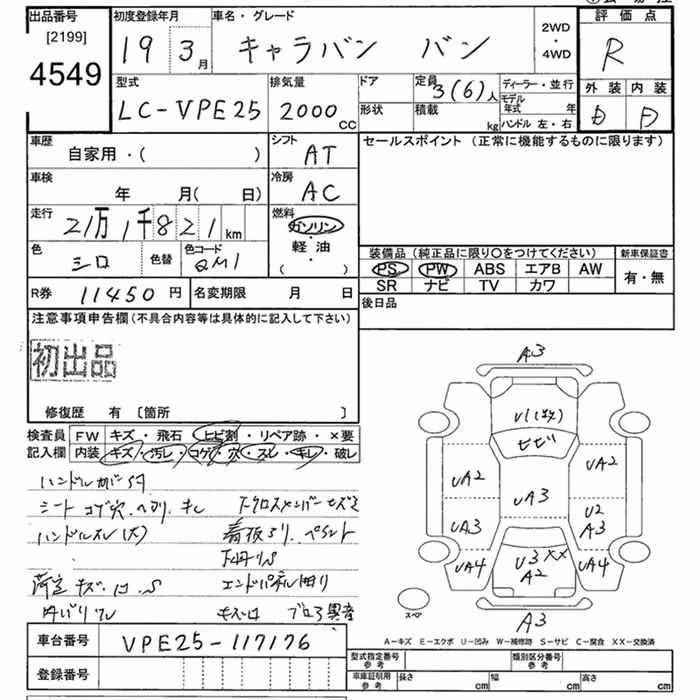 出品番号 [2199] 4549
初度登録年月 19 3月
車名・グレード キャラバン バン
2WD・4WD
評価点 R
型式 LC-VPE25
排気量 2000cc
ドア
形状
定員 3(6)人
積載 kg
ディーラー・並行
モデル年式 年
ハンドル 左・右
外装 D 内装 D
車歴 自家用・( )
シフト AT
セールスポイント (正常に機能するものに限ります)
車検 年 月(日)
冷房 AC
走行 21万1千821km
燃料 ガソリン・軽油・( )
色 シロ 色替 色コード QM1
装備品 (純正品に限り○をつけてください)
新車保証書 有・無
PS PW ABS エアB AW
SR ナビ TV カワ
R券 11450円 名変期限 月 日
後日品
注意事項申告欄(不具合内容等は具体的に記入して下さい)
初出品
修復歴 有 [箇所 ]
検査員記入欄
FW キズ・飛石 ヒビ割・リペア跡・×要
内装 キズ・汚レ・コゲ・穴・スレ・キレ・破レ
シート コゲ穴
荷室 キズ
A3
U1
ヒビ
UA2
UA2
UA3
UA3
U2
A3
UA4
U3 XX
A2
UA4
A3
スペア
A-キズ E-エクボ U-凹み W-補修跡 S-サビ C-腐食 XX-交換済
車台番号 VPE25-117176
登録番号
型式指定番号 参考
類別区分番号 参考
車庫証明用参考 長さ cm 幅 cm 高さ cm